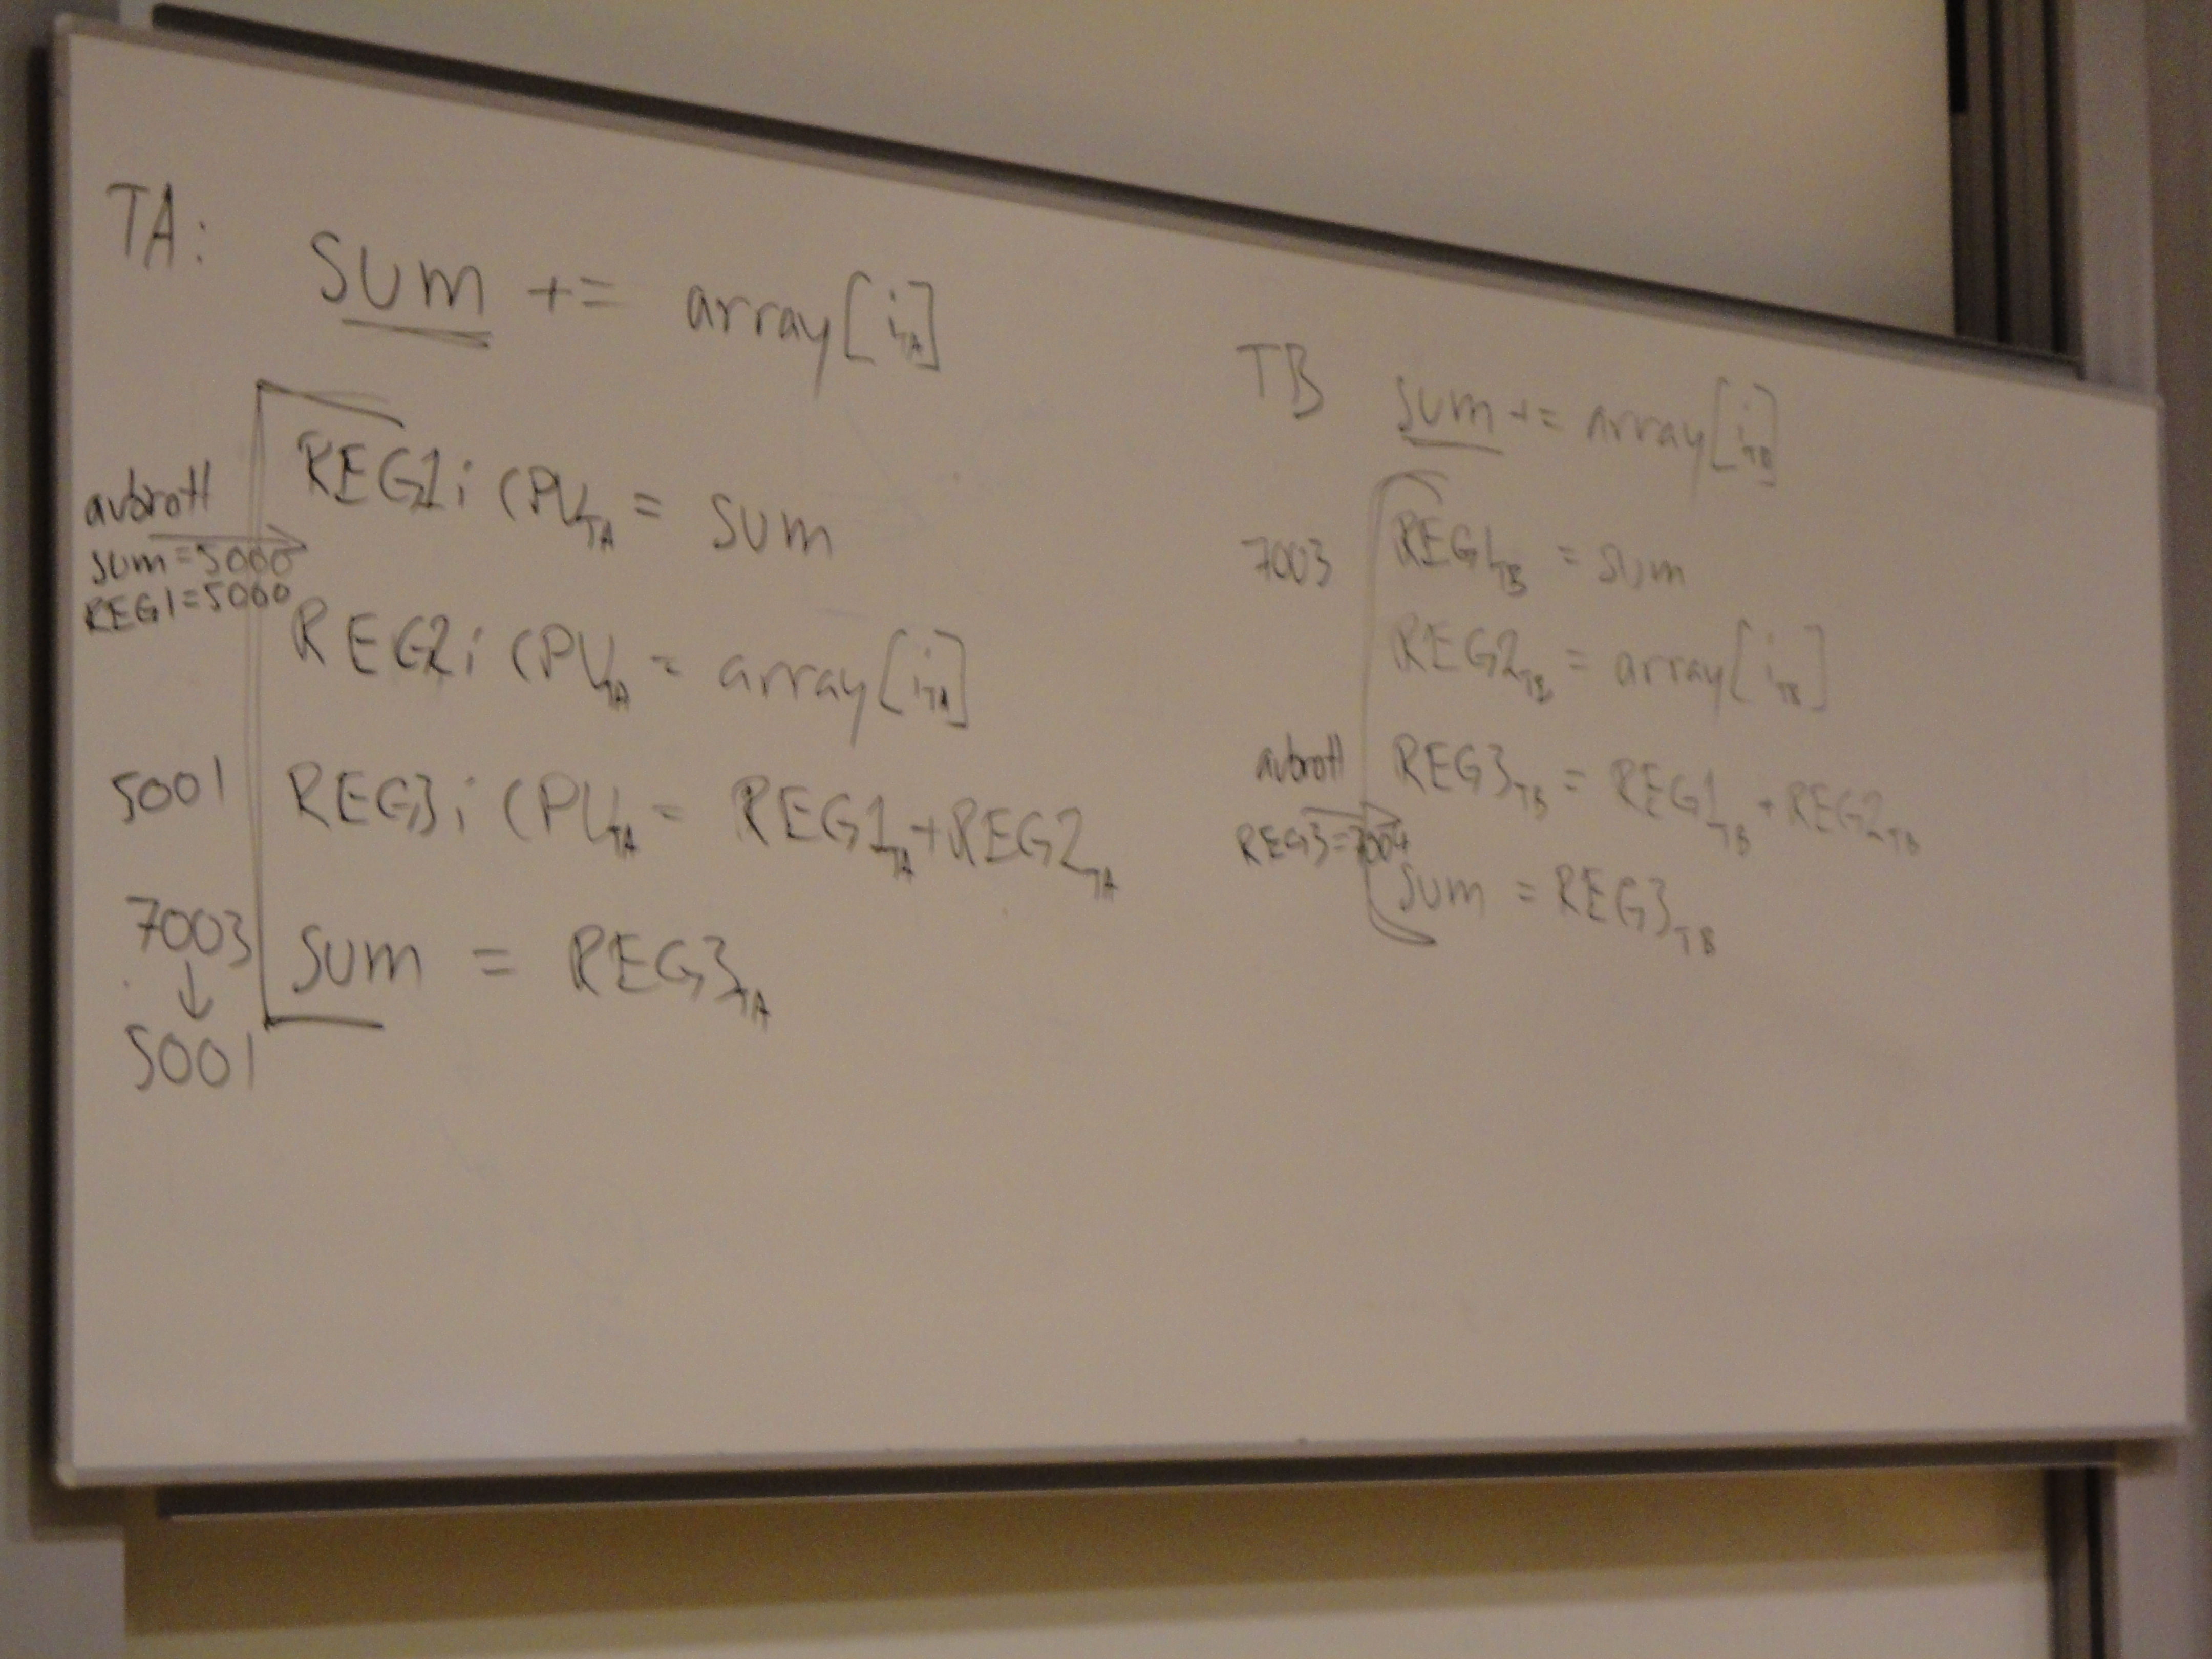 TA:
SUM += array[i_TA]
avbrott
sum=5000
REG1=5000
REG1 i CPU_TA = SUM
REG2 i CPU_TA = array[i_TA]
5001
REG3 i CPU_TA = REG1_TA + REG2_TA
7003
↓
5001
SUM = REG3_TA
TB
SUM += array[i_TB]
7003
REG1_TB = SUM
REG2_TB = array[i_TB]
avbrott
REG3=7004
REG3_TB = REG1_TB + REG2_TB
SUM = REG3_TB